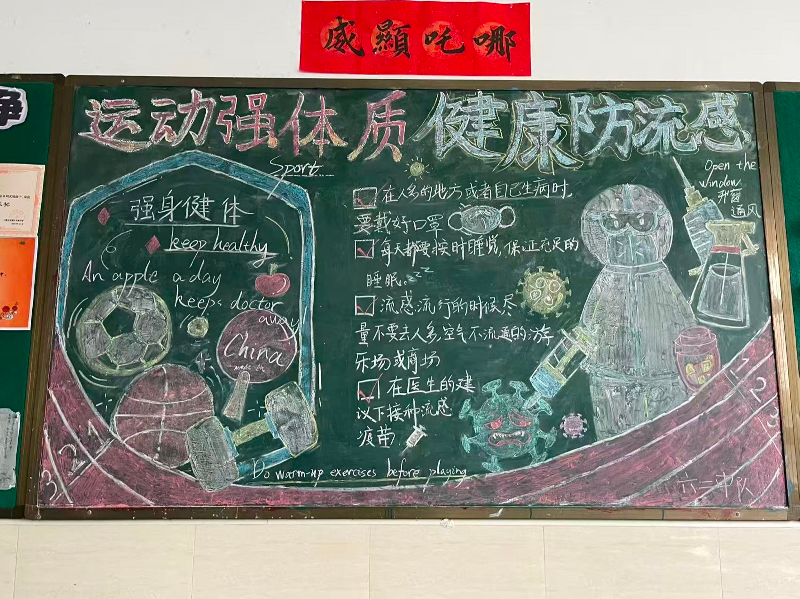 威顯吒哪
运动强体质 健康防流感
Sport
强身健体
keep healthy
An apple a day
keeps doctor
away
China
made in
Do warm-up exercises before playing
在人多的地方或者自己生病时,
要戴好口罩
每天都要按时睡觉,保证充足的
睡眠.zzz
流感流行的时候尽
量不要去人多,空气不流通的游
乐场或商场
在医生的建
以下接种流感
Open the
window
通风
六二中队
3 2 1
1 2 3